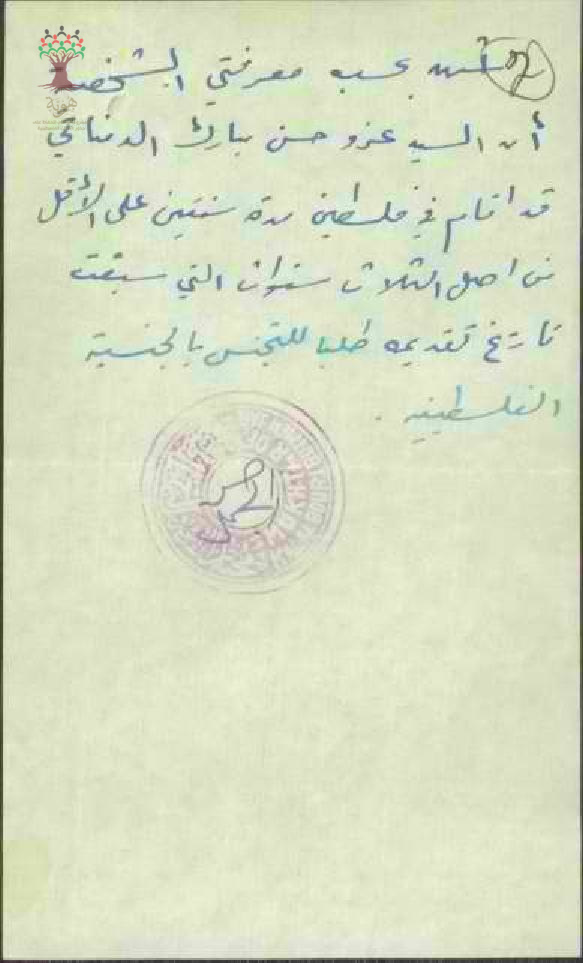 أشهد بحسب معرفتي الشخصية
أن السيد عزو حسن مبارك الدمناتي
قد اقام في فلسطين مدة سنتين على الأقل
من اصل الثلاث سنوات التي سبقت
تاريخ تقديمه طلبا للتجنس بالجنسية
الفلسطينية .